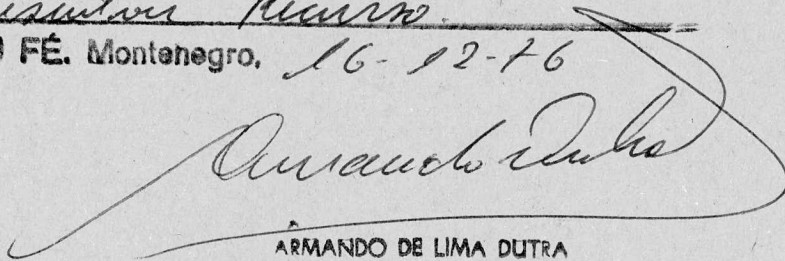 Recurso.
FÉ. Montenegro, 16-12-76
Armando Dutra
ARMANDO DE LIMA DUTRA